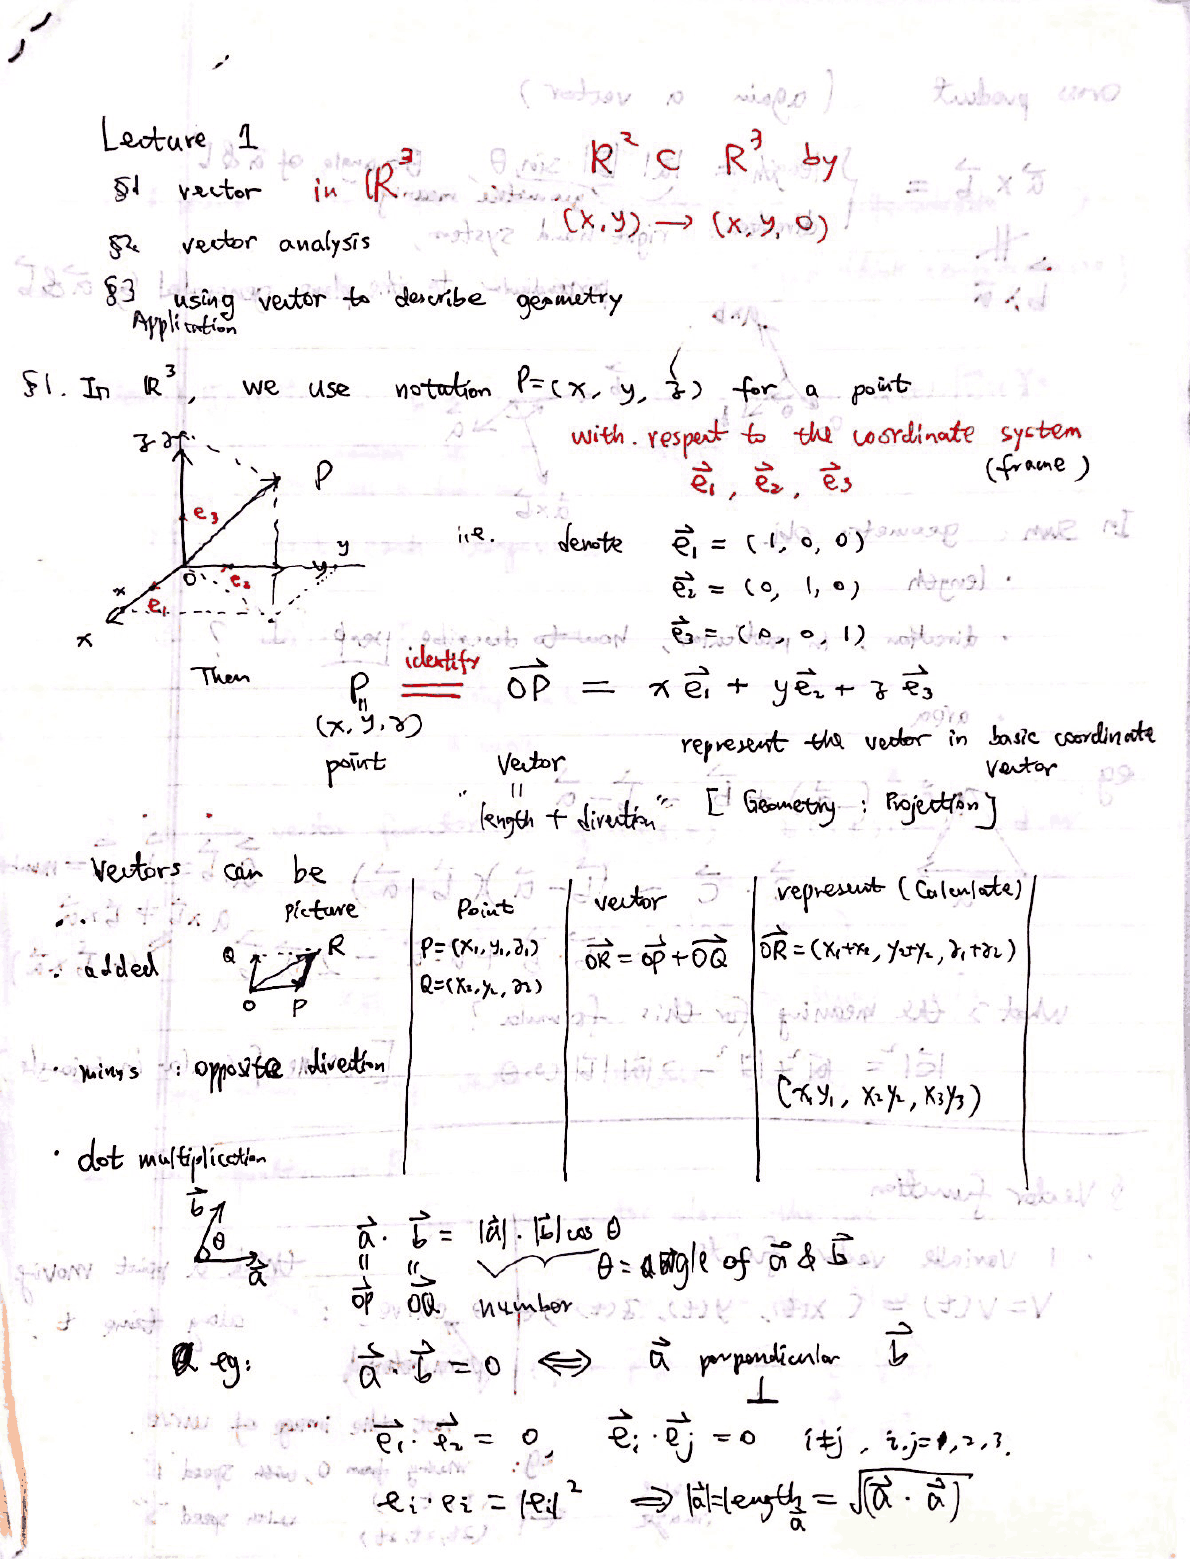 Lecture 1
§1 vector in ℝ³ ℝ² ⊂ ℝ³ by
(x, y) → (x, y, 0)
§2 vector analysis
§3 using vector to describe geometry
Application
§1. In ℝ³, we use notation P=(x, y, z) for a point
with respect to the coordinate system
e⃗₁, e⃗₂, e⃗₃ (frame)
z z
P
e₃
y
O e₂ y
x e₁
x
i.e. denote e⃗₁ = (1, 0, 0)
e⃗₂ = (0, 1, 0)
e⃗₃ = (0, 0, 1)
Then P identify OP⃗ = x e⃗₁ + y e⃗₂ + z e⃗₃
(x, y, z)
represent the vector in basic coordinate
vector
point vector
"length + direction" [Geometry : Projection]
Vectors can be
picture Point vector represent (Calculate)
· added Q R O P P=(x₁, y₁, z₁) OR⃗ = OP⃗ + OQ⃗ OR⃗ = (x₁+x₂, y₁+y₂, z₁+z₂)
Q=(x₂, y₂, z₂)
· minus : opposite direction
(x₁y₁, x₂y₂, x₃y₃)
· dot multiplication
b⃗ θ a⃗
a⃗ · b⃗ = |a⃗| · |b⃗| cos θ
θ = angle of a⃗ & b⃗
OP⃗ OQ⃗ number
eg: a⃗ · b⃗ = 0 ⟺ a⃗ perpendicular b⃗
⊥
e⃗₁ · e⃗₂ = 0, e⃗ᵢ · e⃗ⱼ = 0 i≠j, i,j=1,2,3.
eᵢ · eᵢ = |eᵢ|² ⟹ |a⃗| = length a⃗ = √(a⃗ · a⃗)